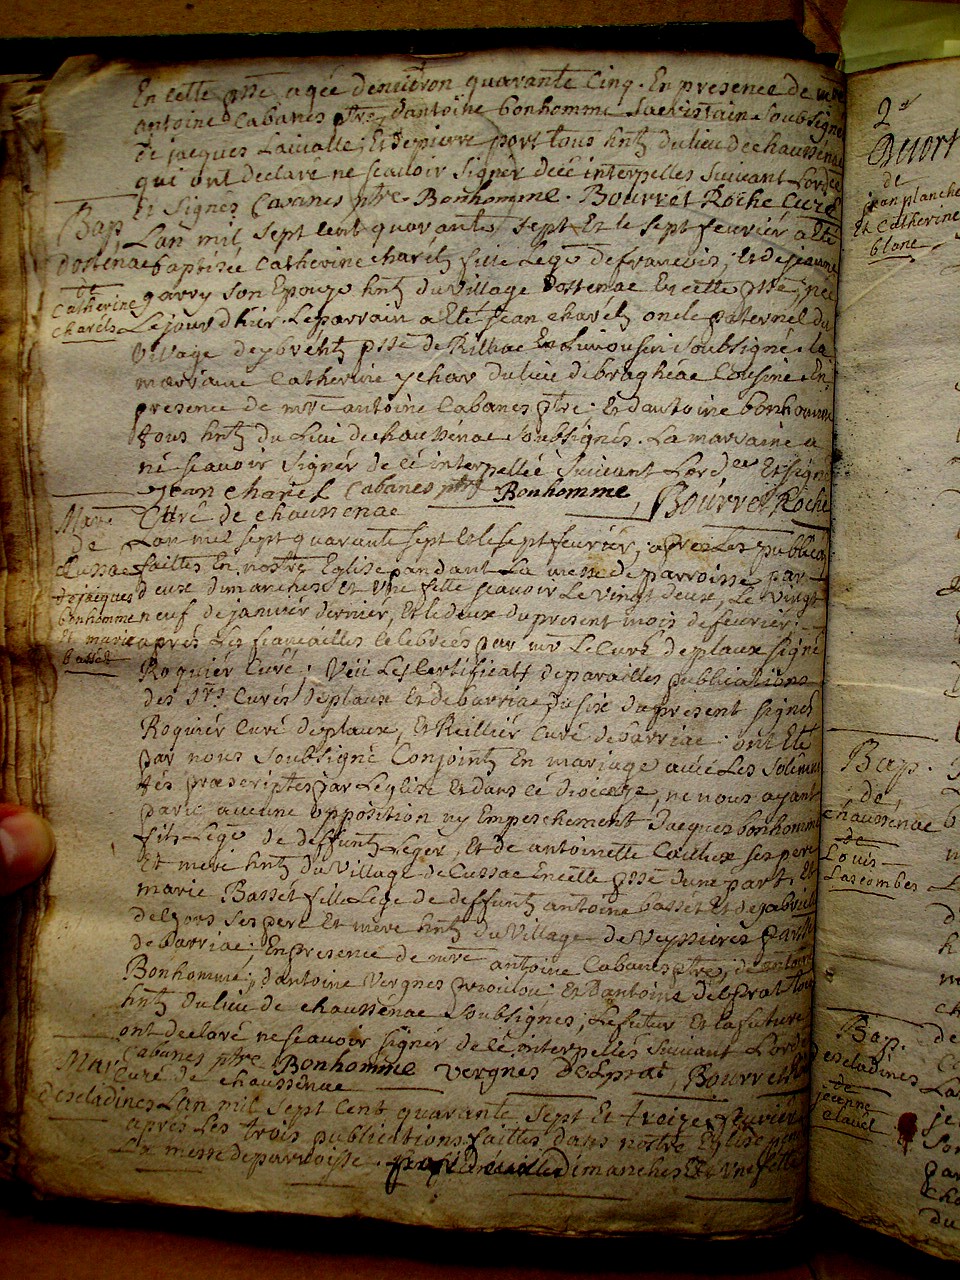 En cette psse agée denviron quarante Cinq. En presence de mre
antoine Cabanes ptre, dantoine bonhomme Sacristain Soubsigne
de jacques Laivialle; Et de pierre port tous hnts du lieu de chaussenac
qui ont declaré ne scavoir Signer de cé interpelles Suivant Lordce
Et Signes Cabanes ptre. Bonhomme. Bourret Roche Curé
Bap.
dostenac
de
Catherine
charels
Lan mil Sept Cent quarante Sept Et le Sept fevrièr a eté
baptisée Catherine charels fille Lege de francois; Et de jeanne
garry Son Epouze hnts du Village dostenac En cette psse, née
Le jour dhièr. Le parrain a Eté jean charels oncle paternel du
Village deybrehts psse de Rilhac En Limousin Soubsigné. La
marraine Catherine ychar du lieu de brageac Cousine. En
presence de mre antoine Cabanes ptre. Et dantoine bonhomme
tous hnts du Lieu de chaussénac Soubsignés. La marraine a
né scavoir Signér de cé interpellée Suivant Lordce Et Signé
jean charel Cabanes ptre Bonhomme, Bourret Roche
Curé de chaussenac
Mar.
de
Cussac
de jacques
bonhomme
Et marie
basset
Lan mil Sept quarante Sept Et le Sept fevriér, apres Les publicâ
faittes En nostre Eglise pandant La messe de parroisse par
deux dimanches Et Une fette scavoir Le Vingt deux, Le Vingt
neuf de janviér dernier, Et le deux du present mois de fevriér.
apres Les fiancailles celebrées par mr Le Curé de plaux signé
Roquièr Curé; Veü Les Certificats de pareilles publications
des Srs Curés deplaux Et de barriac du six du present signés
Roquiér Curé de plaux, Et Reilliér Curé de barriac. ont Eté
par nous Soubsigné Conjoints En mariage avec Les Solemni
tés prescriptes par L'eglise Et dans cé diocèze, ne nous ayant
paru aucune opposition ny Empeschement Jacques bonhomme
fils Lege de deffunt Leger, Et de antoinette Caillux Ses pere
Et mere hnts du Village de Cussac En cette psse dune part, Et
marie Basset fille Lege de deffunt antoine basset Et de gabriele
delzors Ses pere Et mere hnts du Village de Veyssieres psse
de barriac; En presence de mre antoine Cabanes ptre, de antoine
Bonhomme; dantoine Vergnes praoulou; Et dantoine delprat tous
hnts du lieu de chaussenac Soubsignes; Le futur Et la future
ont declaré ne scavoir signér de cé interpellés Suivant Lordce
Cabanes ptre Bonhomme Vergnes Delprat, Bourret
Curé de chaussénac
Mar.
descladines
Lan mil Sept Cent quarante Sept Et treize fevriér
apres Les trois publications faittes dans nostre Eglise pend
La messe de parroisse dimanches Et Une fette
2d
Mort
de
jean planche
Et Catherine
blanc
Bap.
de
chaussenac
de
Louis
Lascombes
Bap.
descladines
de
jeanne
clavel